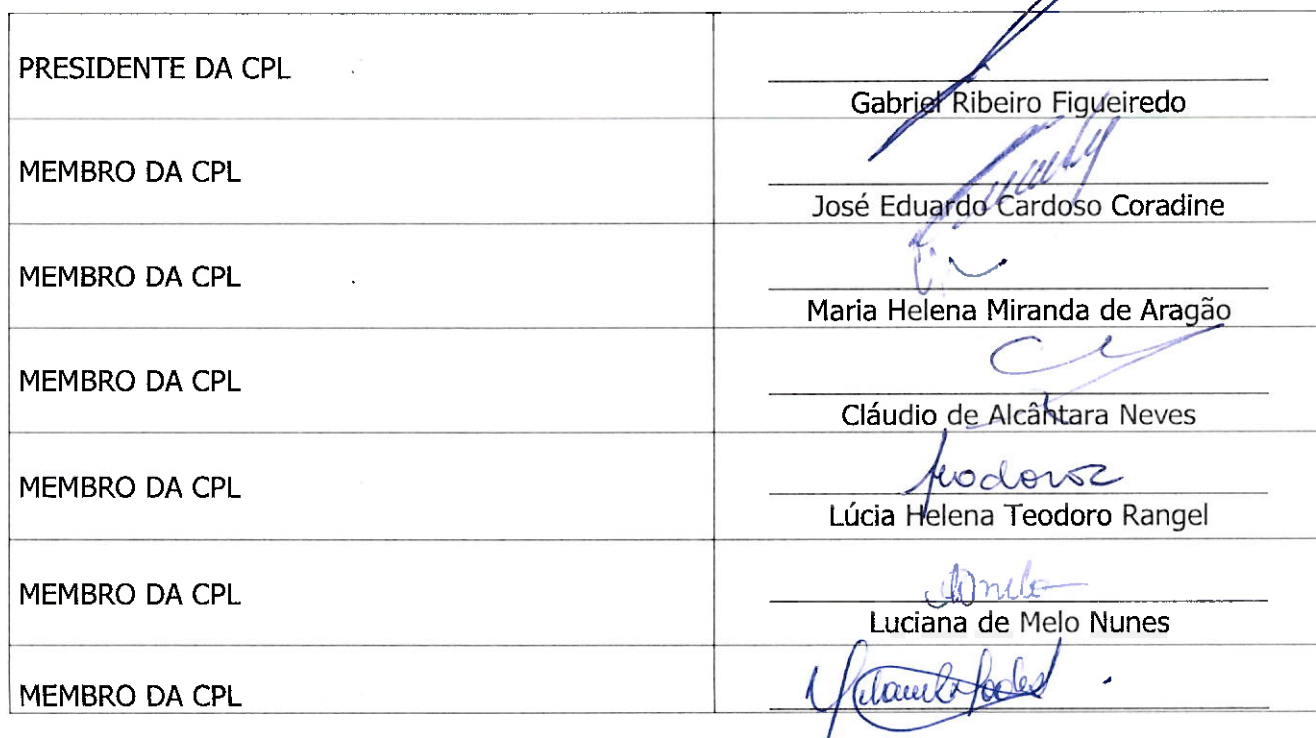 PRESIDENTE DA CPL
Gabriel Ribeiro Figueiredo
MEMBRO DA CPL
José Eduardo Cardoso Coradine
MEMBRO DA CPL
Maria Helena Miranda de Aragão
MEMBRO DA CPL
Cláudio de Alcântara Neves
MEMBRO DA CPL
Lúcia Helena Teodoro Rangel
MEMBRO DA CPL
Luciana de Melo Nunes
MEMBRO DA CPL